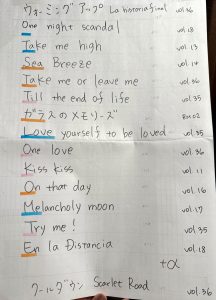 ウォーミングアップ La historia final vol.36
One night scandal vol.18
Take me high vol.13
Sea Breeze vol.14
Take me or leave me vol.36
Till the end of life vol.35
ガラスのメモリーズ BM02
Love yourself to be loved vol.35
One love vol.36
Kiss kiss vol.11
On that day vol.16
Melancholy moon vol.17
Try me! vol.35
En la Distancia vol.18
+α
クールダウン Scarlet Road vol.36